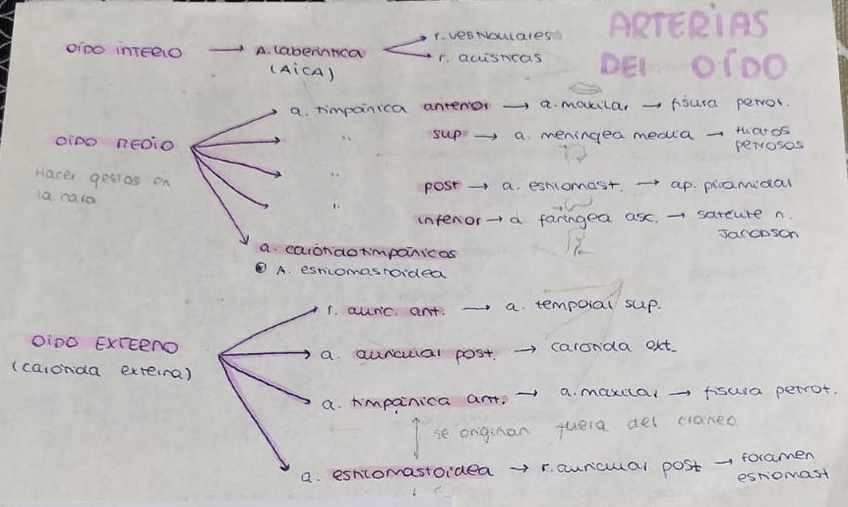 ARTERIAS
DEL OÍDO
OÍDO INTERIO → A. laberíntica
(AICA)
r. vestibulares
r. acústicas
OÍDO MEDIO
Hacer gestos en
la cara
a. timpánica anterior → a. maxilar → fisura petrot.
" sup → a. meníngea media → Hiatos
petrosos
" post → a. estilomast. → ap. piramidal
" inferior → a. faríngea asc. → satélite n.
Jacobson
a. carótidotimpánicas
A. estilomastoidea
OÍDO EXTERNO
(carótida externa)
r. auric. ant. → a. temporal sup.
a. auricular post. → carótida ext.
a. timpánica ant. → a. maxilar → fisura petrot.
se originan fuera del cráneo.
a. estilomastoidea → r. auricular post → foramen
estilomast